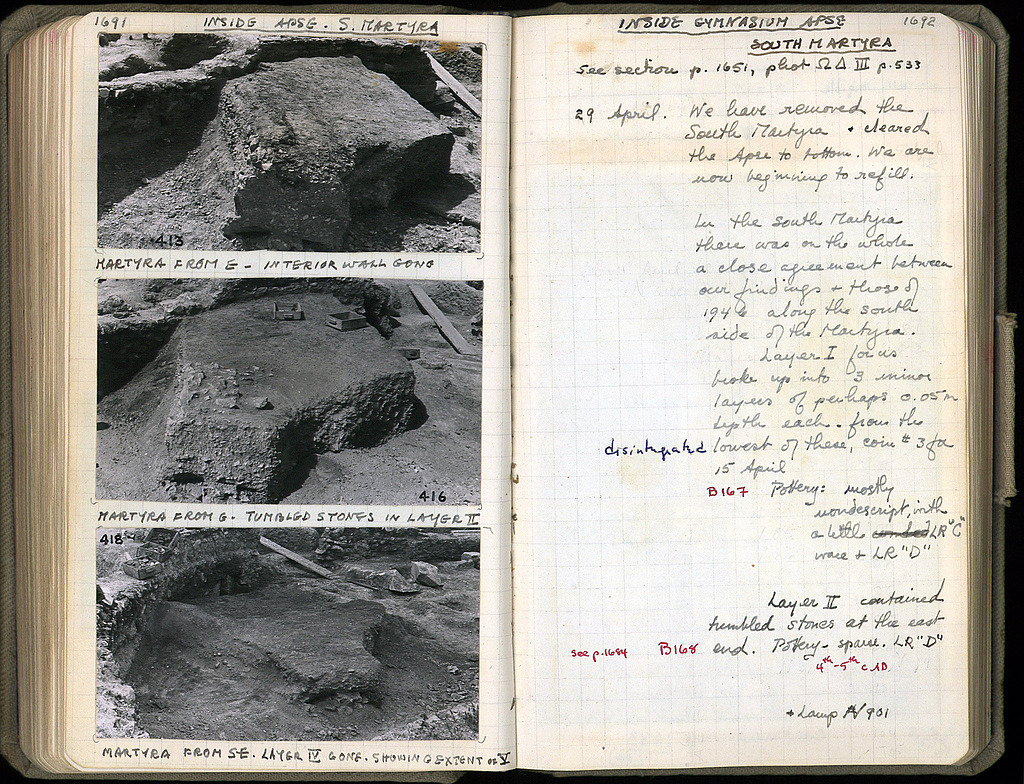 1691 INSIDE APSE. S. MARTYRA
413
MARTYRA FROM E - INTERIOR WALL GONE
416
MARTYRA FROM E. TUMBLED STONES IN LAYER II
418
MARTYRA FROM SE. LAYER IV GONE. SHOWING EXTENT OF V
INSIDE GYMNASIUM APSE 1692
SOUTH MARTYRA
see section p. 1651, phot ΩΔ III p. 533
29 April. We have removed the
South Martyra + cleared
the Apse to bottom. We are
now beginning to refill.
In the south Martyra
there was on the whole
a close agreement between
our findings + those of
1946 along the south
side of the Martyra.
Layer I for us
broke up into 3 minor
layers of perhaps 0.05m
depth each. from the
disintegrated lowest of these, coin # 3 for
15 April
B167 Pottery: mostly
nondescript, with
a little LR "C"
ware + LR "D"
Layer II contained
tumbled stones at the east
see p. 1684 B168 end. Pottery - sparse. LR "D"
4th-5th c AD.
+ Lamp 901